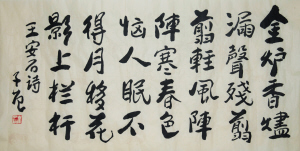 金炉香燼
漏聲殘翦
翦輕風陣
陣寒春色
恼人眠不
得月移花
影上栏杆
王安石诗